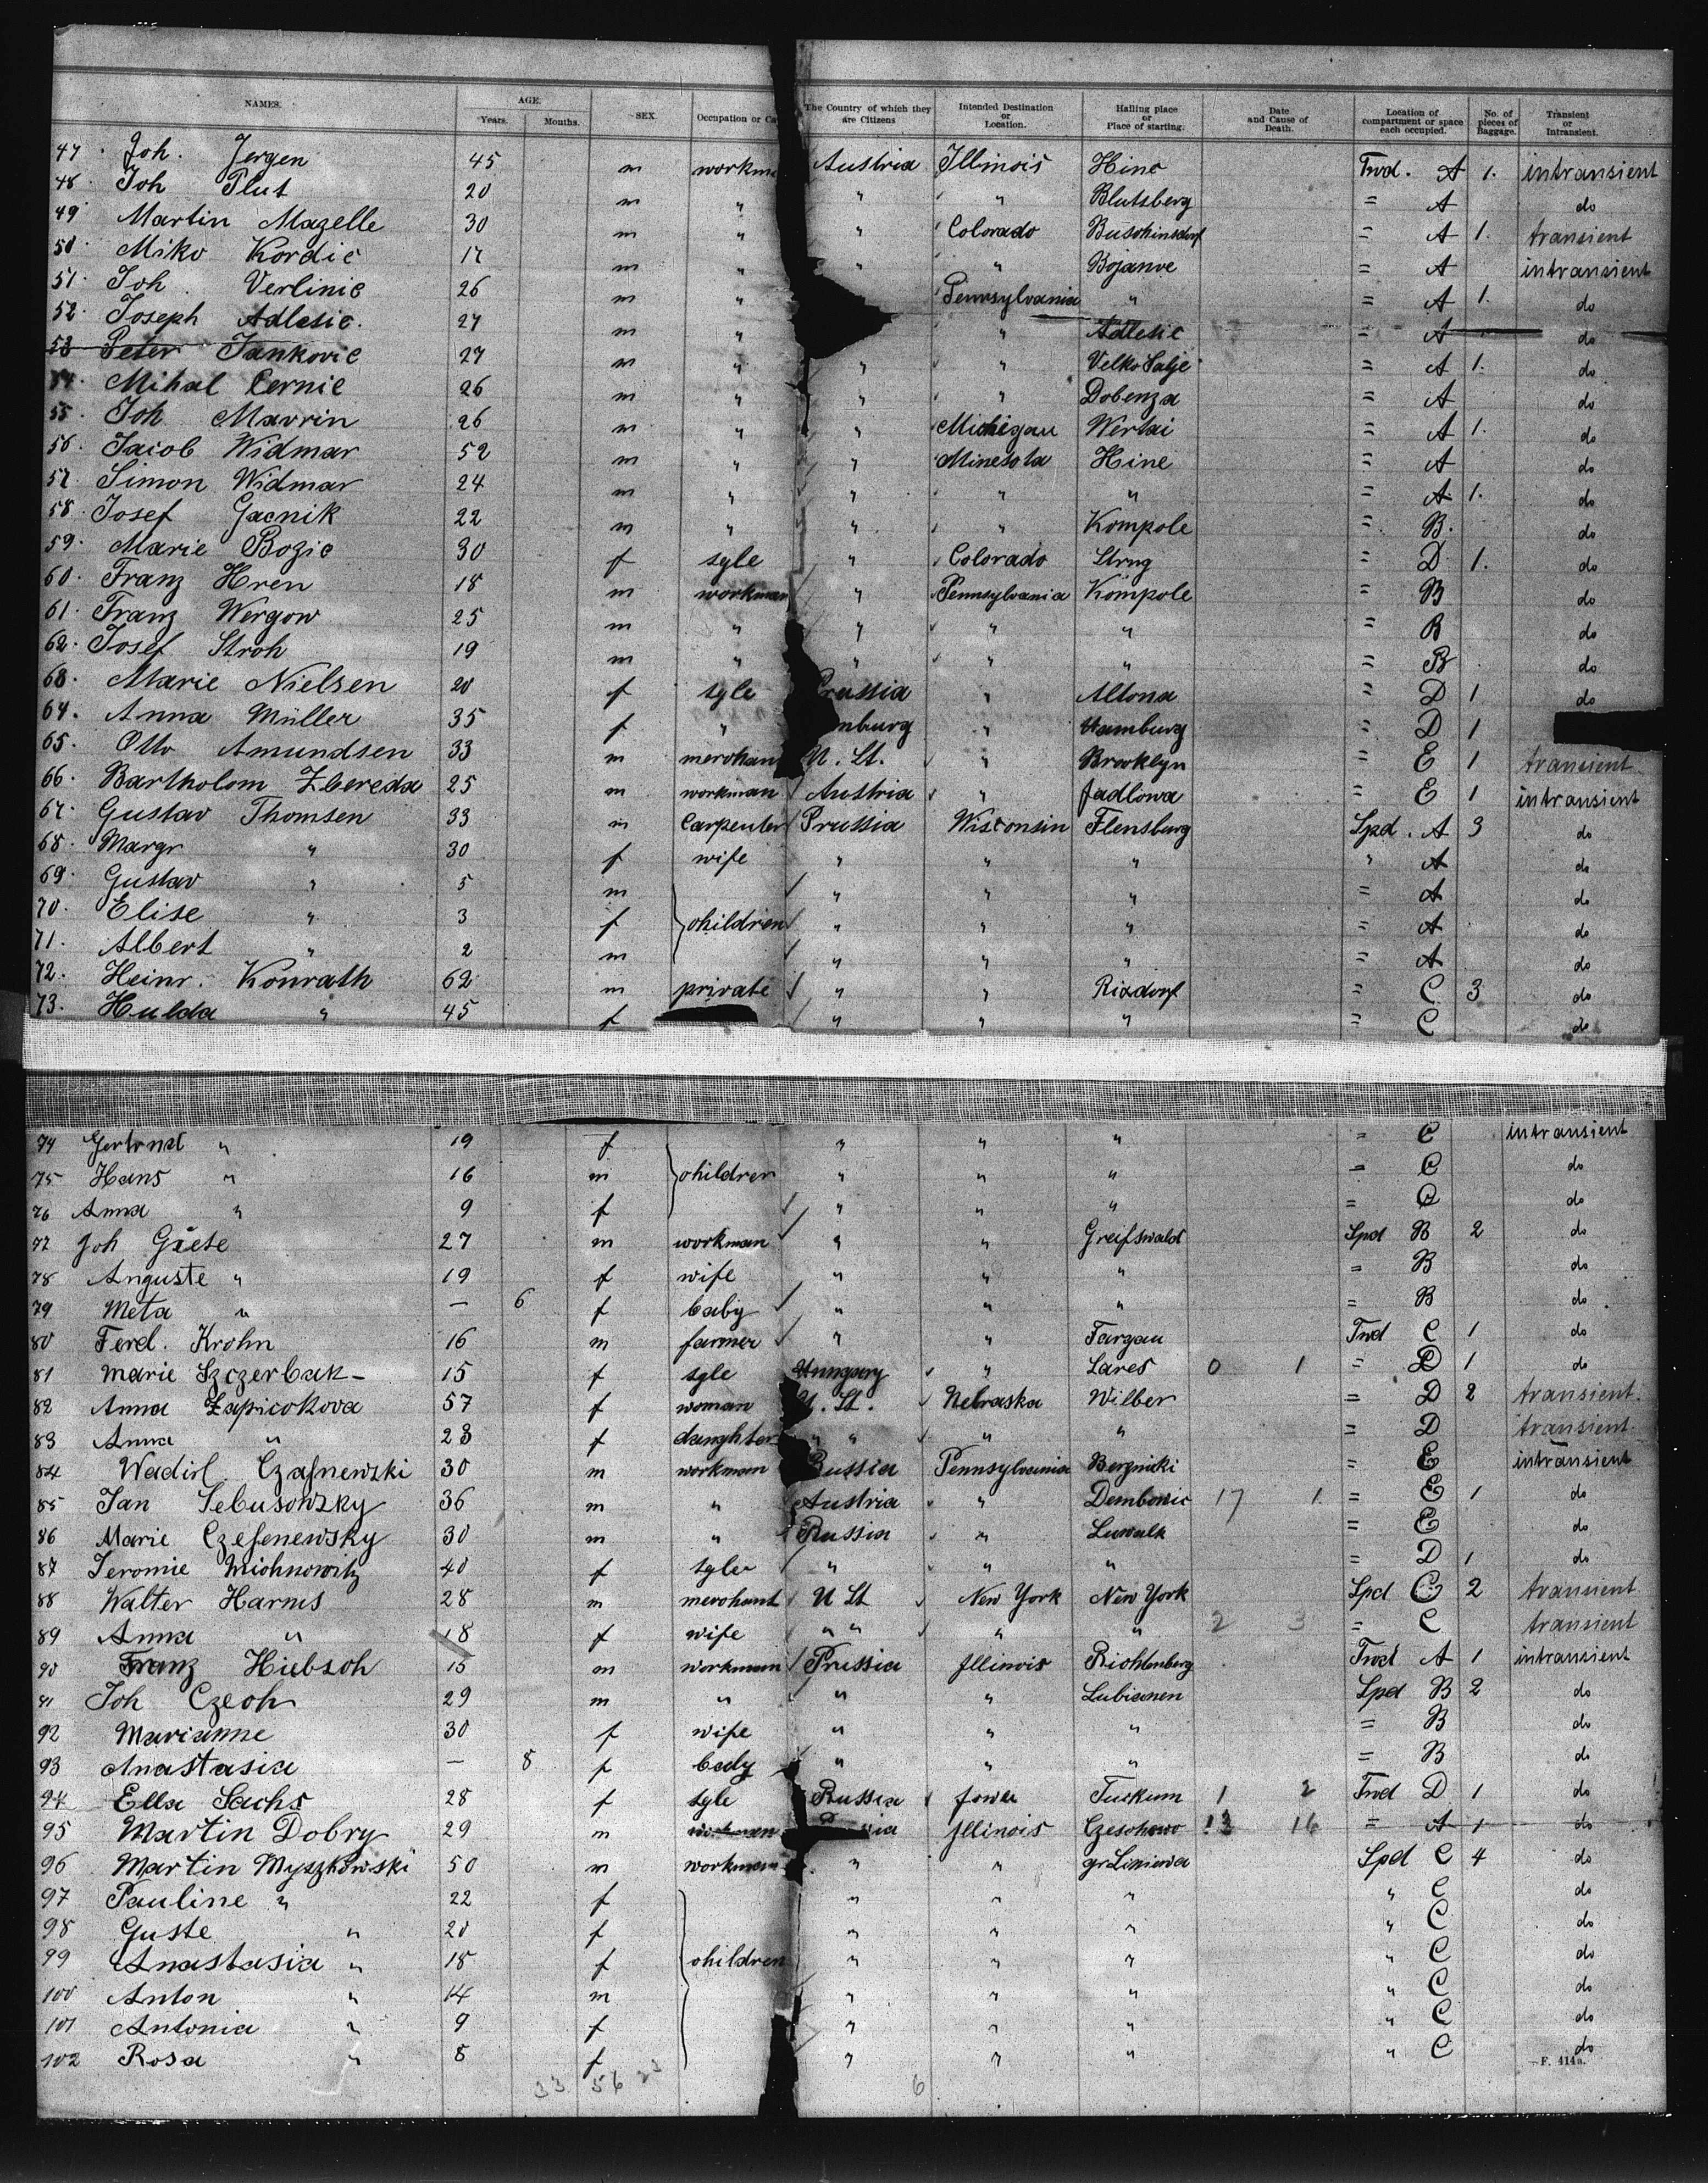 NAMES. AGE. Years. Months. SEX. Occupation or Ca The Country of which they are Citizens Intended Destination or Location. Hailing place or Place of starting. Date and Cause of Death. Location of compartment or space each occupied. No. of pieces of Baggage. Transient or Intransient.
47. Joh. Jergen 45 m workm Austria Illinois Hine Fwd. A 1. intransient
48. Joh Plut 20 m " " " Blutsberg = A do
49. Martin Mazelle 30 m " " Colorado Buschinsdorf = A 1. transient
50. Miko Kordic 17 m " " " Bojanve = A intransient
51. Joh Verlinic 26 m " Pennsylvania " = A 1. do
52. Joseph Adlesic. 27 m " " Adlesic = A do
53 Peter Jankovic 27 m " " " Velko Salje = A 1. do
54. Mihal Cernic 26 m " " " Dobenza = A do
55. Joh Mavrin 26 m " " Michigau Wertai = A 1. do
56. Jacob Widmar 52 m " " Minesota Hine = A do
57. Simon Widmar 24 m " " " " = A 1. do
58. Josef Gacnik 22 m " " " Kompole = B. do
59. Marie Bozic 30 f sgle " Colorado Strug = D 1. do
60. Franz Hren 18 m workman " Pennsylvania Kompole = B do
61. Franz Wergow 25 m " " " " = B do
62. Josef Stroh 19 m " " " " = B do
63. Marie Nielsen 20 f sgle Prussia " Altona = D 1 do
64. Anna Müller 35 f " mburg " Hamburg = D 1
65. Otto Amundsen 33 m merchan U. St. " Brooklyn = E 1 transient
66. Bartholom Zbereda 25 m workman Austria " Jadlowa = E 1 intransient
67. Gustav Thomsen 33 m Carpenter Prussia Wisconsin Flensburg Spd. A 3 do
68. Margr " 30 f wife " " " " A do
69. Gustav " 5 m " " " = A do
70. Elise " 3 f children " " " = A do
71. Albert " 2 m " " " = A do
72. Heinr. Konrath 62 m private " " Rixdorf = C 3 do
73. Hulda " 45 f " " " = C do
74 Gertrud " 19 f " " " = C intransient
75 Hans " 16 m children " " " = C do
76 Anna " 9 f " " " = C do
77 Joh Giese 27 m workman " " Greifswald Spd B 2 do
78 Auguste " 19 f wife " " " = B do
79 Meta " — 6 f baby " " " = B do
80 Ferd. Krohn 16 m farmer " " Targau Fwd C 1 do
81 Marie Szczerbak 15 f sgle Hungary " Lares 0 1 = D 1 do
82 Anna Zapricokova 57 f woman U. St. Nebraska Wilber = D 2 transient.
83 Anna " 23 f daughter " " " " = D transient.
84 Wadisl. Czasnewski 30 m workman Russia Pennsylvania Berznicki = E intransient
85 Jan Sebusowzky 36 m " Austria " Dembowic 17 1 = E 1 do
86 Marie Czesenewsky 30 m " Russia " Suwalk = E do
87 Jeromie Michnowitz 40 f sgle " " " = D 1 do
88 Walter Harms 28 m merchant U St New York New York Spd C 2 transient
89 Anna " 18 f wife " " " " 2 3 = C transient
90 Franz Hiebsch 15 m workman Prussia Illinois Richtenberg Fwd A 1 intransient
91 Joh Czech 29 m " " " Lubianen Spd B 2 do
92 Marianne 30 f wife " " " = B do
93 Anastasia — 8 f baby " " " = B do
94 Ella Sachs 28 f sgle Russia Jowa Tuckum 1 2 Fwd D 1 do
95 Martin Dobry 29 m workman Illinois Czeschowo 13 16 = A 1 do
96 Martin Myszkowski 50 m workman " " gr Liniewa Spd C 4 do
97 Pauline " 22 f " " " " C do
98 Guste " 20 f " " " " C do
99 Anastasia " 18 f children " " " " C do
100 Anton " 14 m " " " " C do
101 Antonia " 9 f " " " " C do
102 Rosa " 8 f " " " " C do
F. 414a.
33 56 6